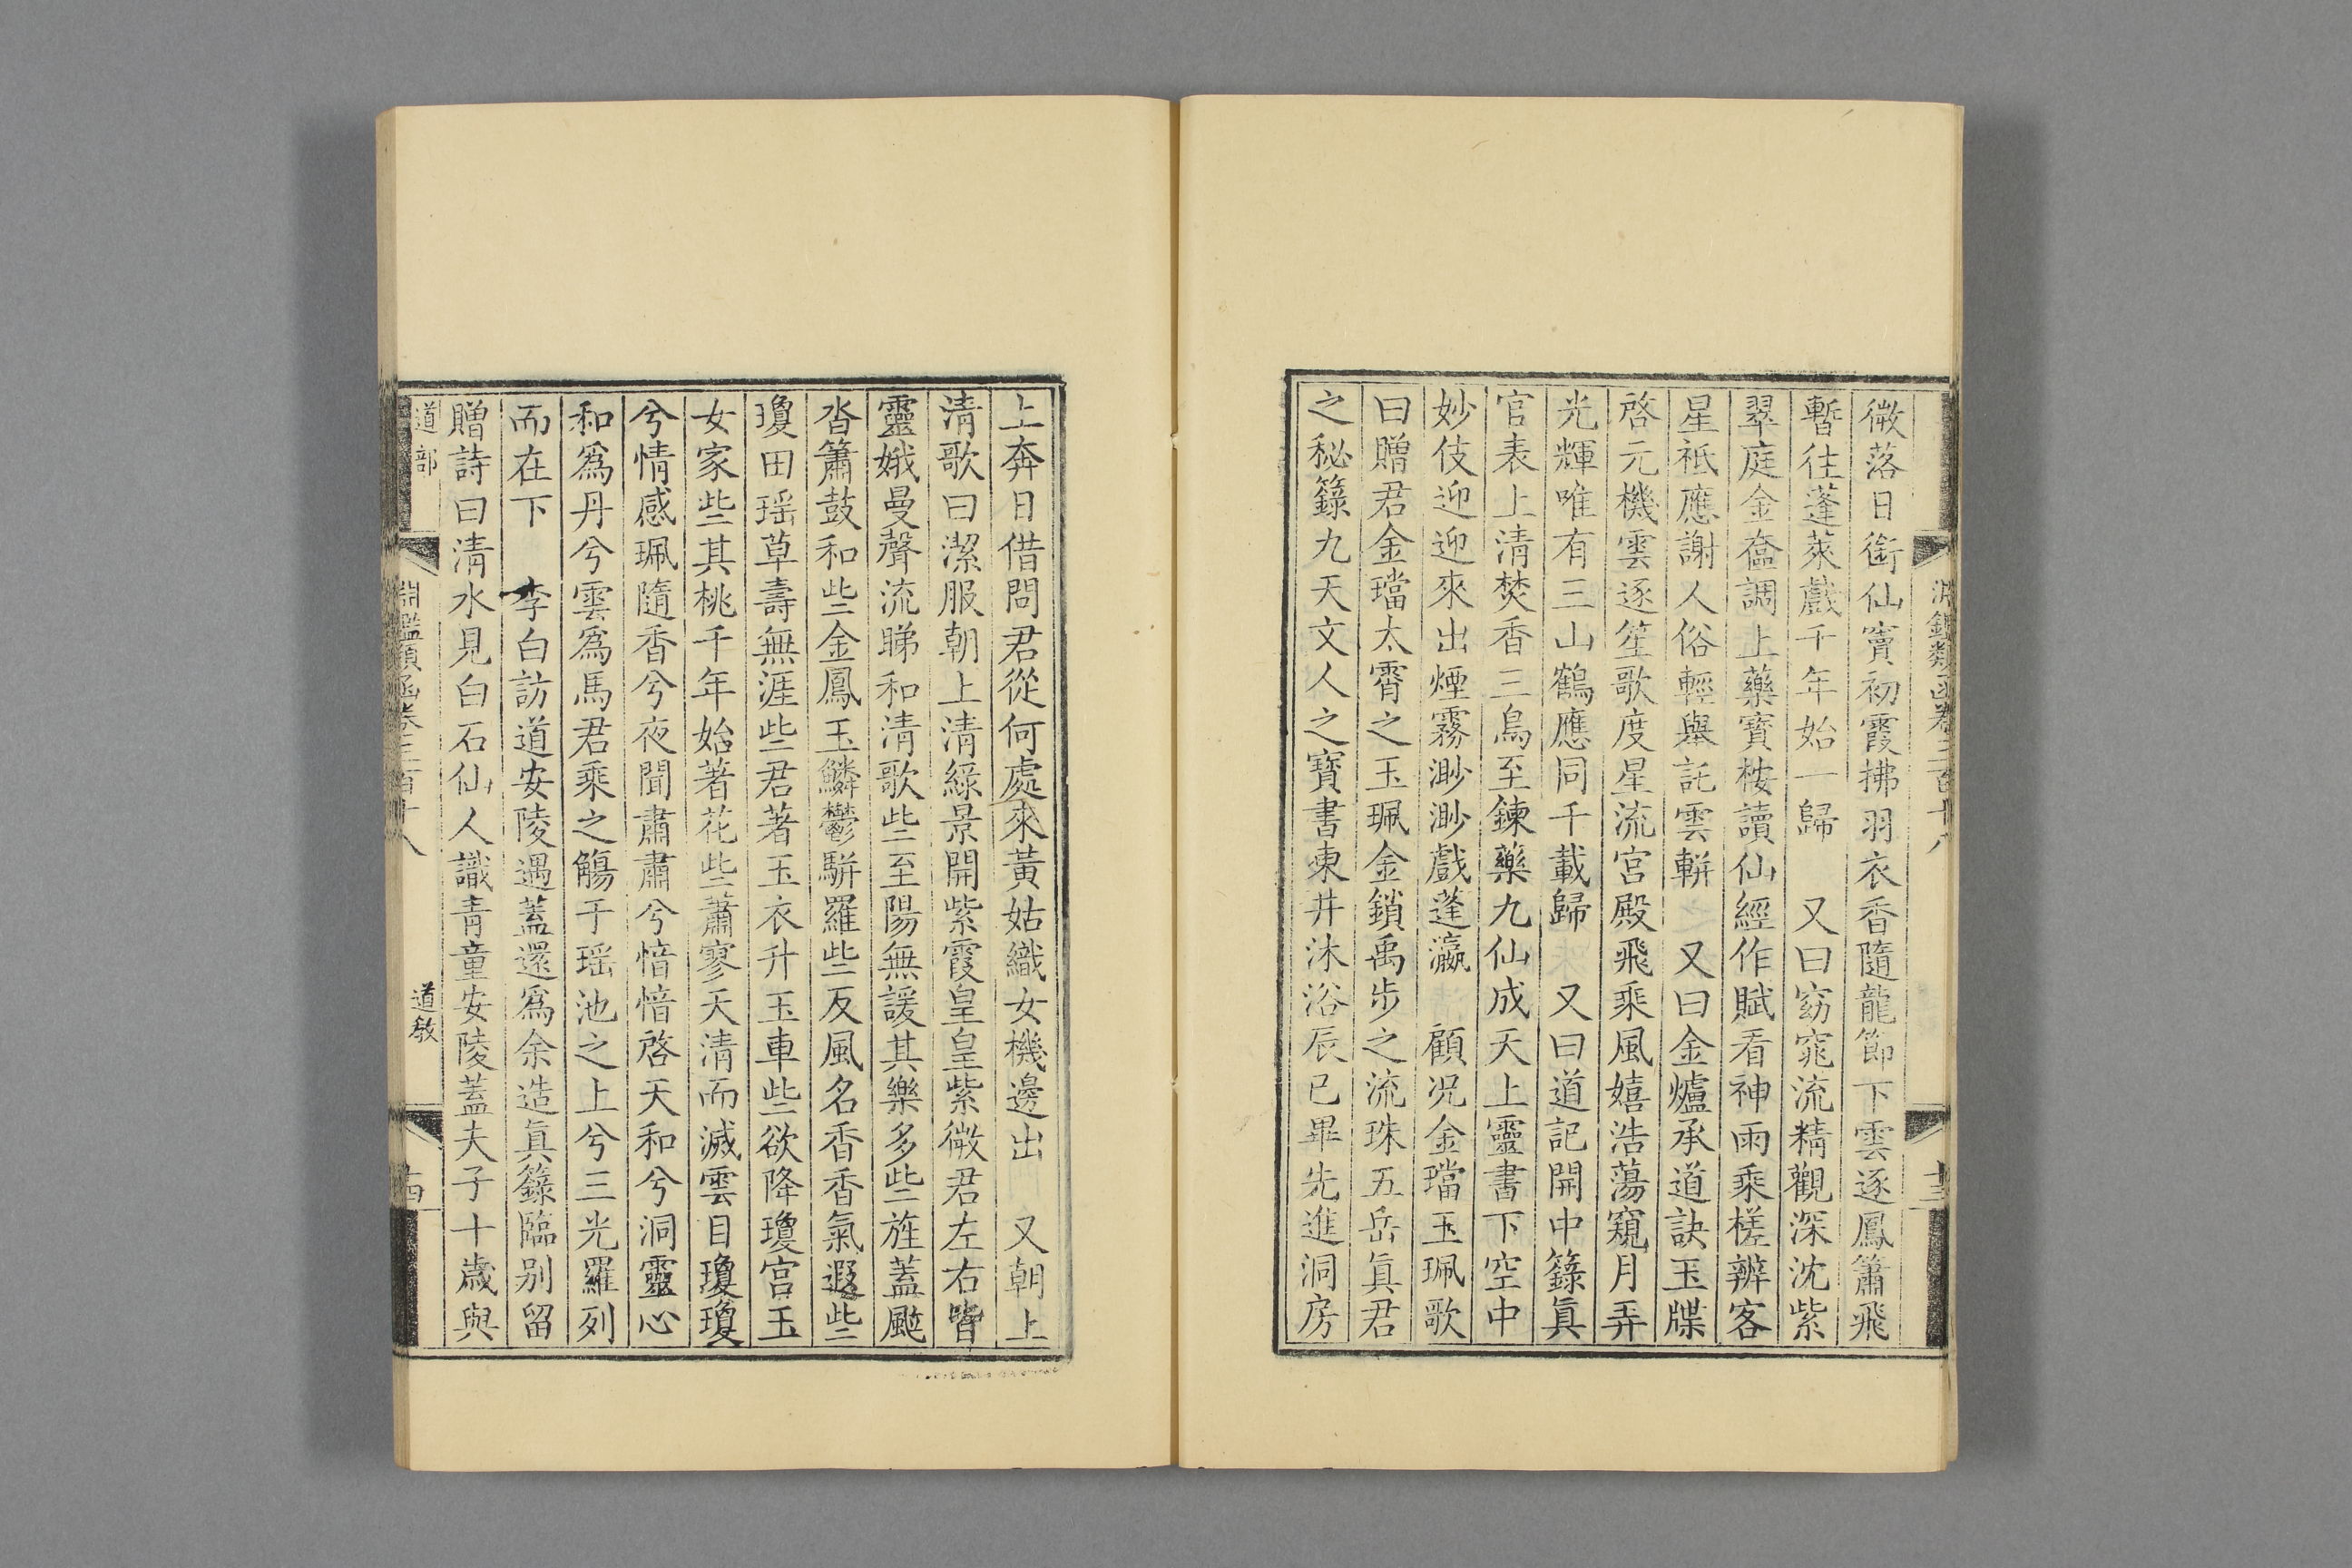 淵鑑類函卷三百十八
十三
微落日銜仙竇初霞拂羽衣香隨龍節下雲逐鳳簫飛
暫往蓬萊戲千年始一歸　又曰窈窕流精觀深沈紫
翠庭金奩調上藥寶桉讀仙經作賦看神雨乘槎辨客
星祇應謝人俗輕舉託雲軿　又曰金爐承道訣玉牒
啓元機雲逐笙歌度星流宮殿飛乘風嬉浩蕩窺月弄
光輝唯有三山鶴應同千載歸　又曰道記開中籙眞
官表上清焚香三鳥至鍊藥九仙成天上靈書下空中
妙伎迎迎來出煙霧渺渺戲蓬瀛　顧况金璫玉珮歌
曰贈君金璫太霄之玉珮金鎖禹步之流珠五岳眞君
之秘籙九天文人之寶書東井沐浴辰已畢先進洞房
上奔日借問君從何處來黃姑織女機邊出　又朝上
清歌曰潔服朝上清綠景開紫霞皇皇紫微君左右皆
靈娥曼聲流睇和清歌些至陽無諼其樂多些旌蓋颭
沓簫鼓和些金鳳玉鱗鬱駢羅些反風名香香氣遐些
瓊田瑶草壽無涯些君著玉衣升玉車些欲降瓊宮玉
女家些其桃千年始著花些蕭寥天清而滅雲目瓊瓊
兮情感珮隨香兮夜聞肅肅兮愔愔啓天和兮洞靈心
和爲丹兮雲爲馬君乘之觴于瑶池之上兮三光羅列
而在下　李白訪道安陵遇蓋還爲余造眞籙臨别留
贈詩曰清水見白石仙人識青童安陵蓋夫子十歲與
道部　淵鑑類函卷三百十八　道教　十四